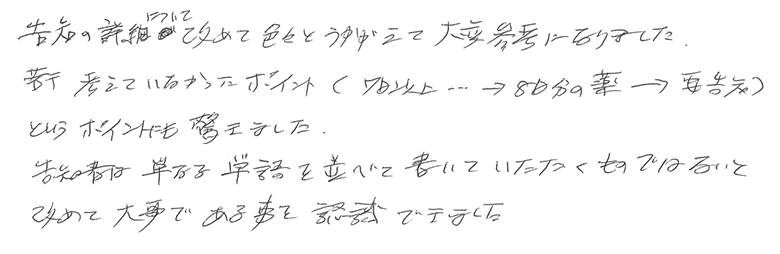 告知の詳細について改めて色々とうかがえて大変参考になりました.
普段考えていなかったポイント(7日以上…→8日分の薬→要告知)
というポイントにも驚きました.
告知書は単なる単語を並べて書いていただくものではないと
改めて大事である事を認識できました